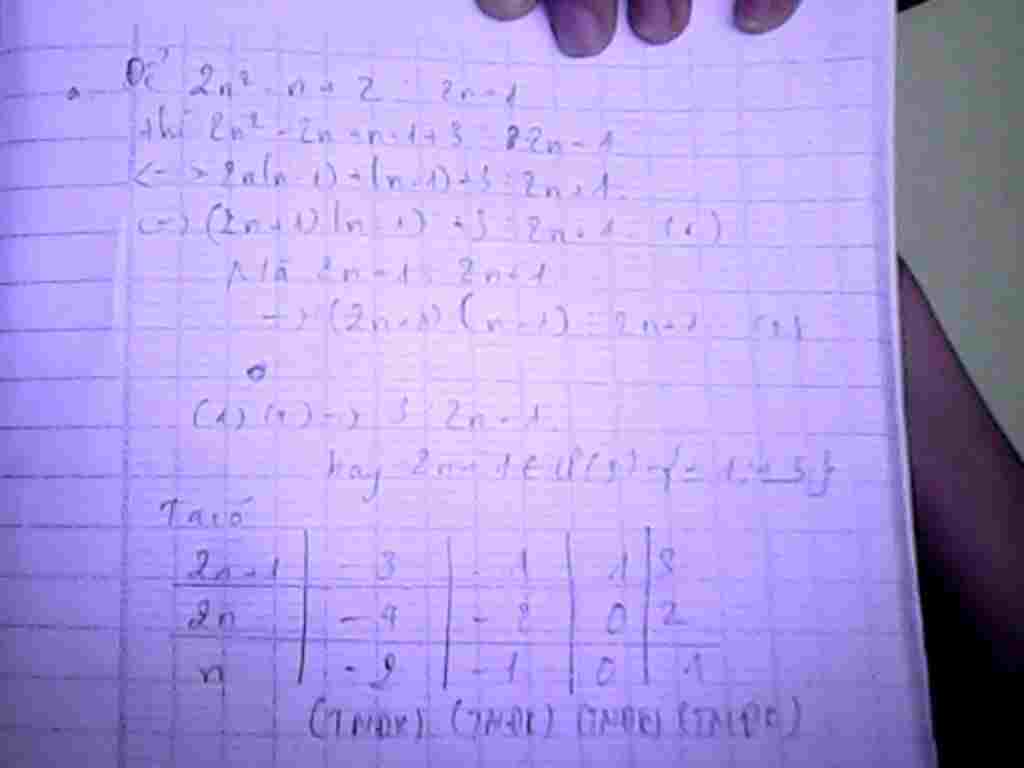 a. Để 2n² - n + 2 ⋮ 2n + 1
thì 2n² - 2n + n - 1 + 3 ⋮ 2n + 1
<-> 2n(n - 1) + (n - 1) + 3 ⋮ 2n + 1.
<-> (2n + 1)(n - 1) + 3 ⋮ 2n + 1 (1)
Mà 2n + 1 ⋮ 2n + 1
-> (2n + 1)(n - 1) ⋮ 2n + 1 (2)
(1) (2) -> 3 ⋮ 2n + 1.
hay 2n + 1 ∈ Ư(3) = {± 1; ± 3}
Ta có
2n + 1 | - 3 | - 1 | 1 | 3
2n | - 4 | - 2 | 0 | 2
n | - 2 | - 1 | 0 | 1
(TMĐK) (TMĐK) (TMĐK) (TMĐK)